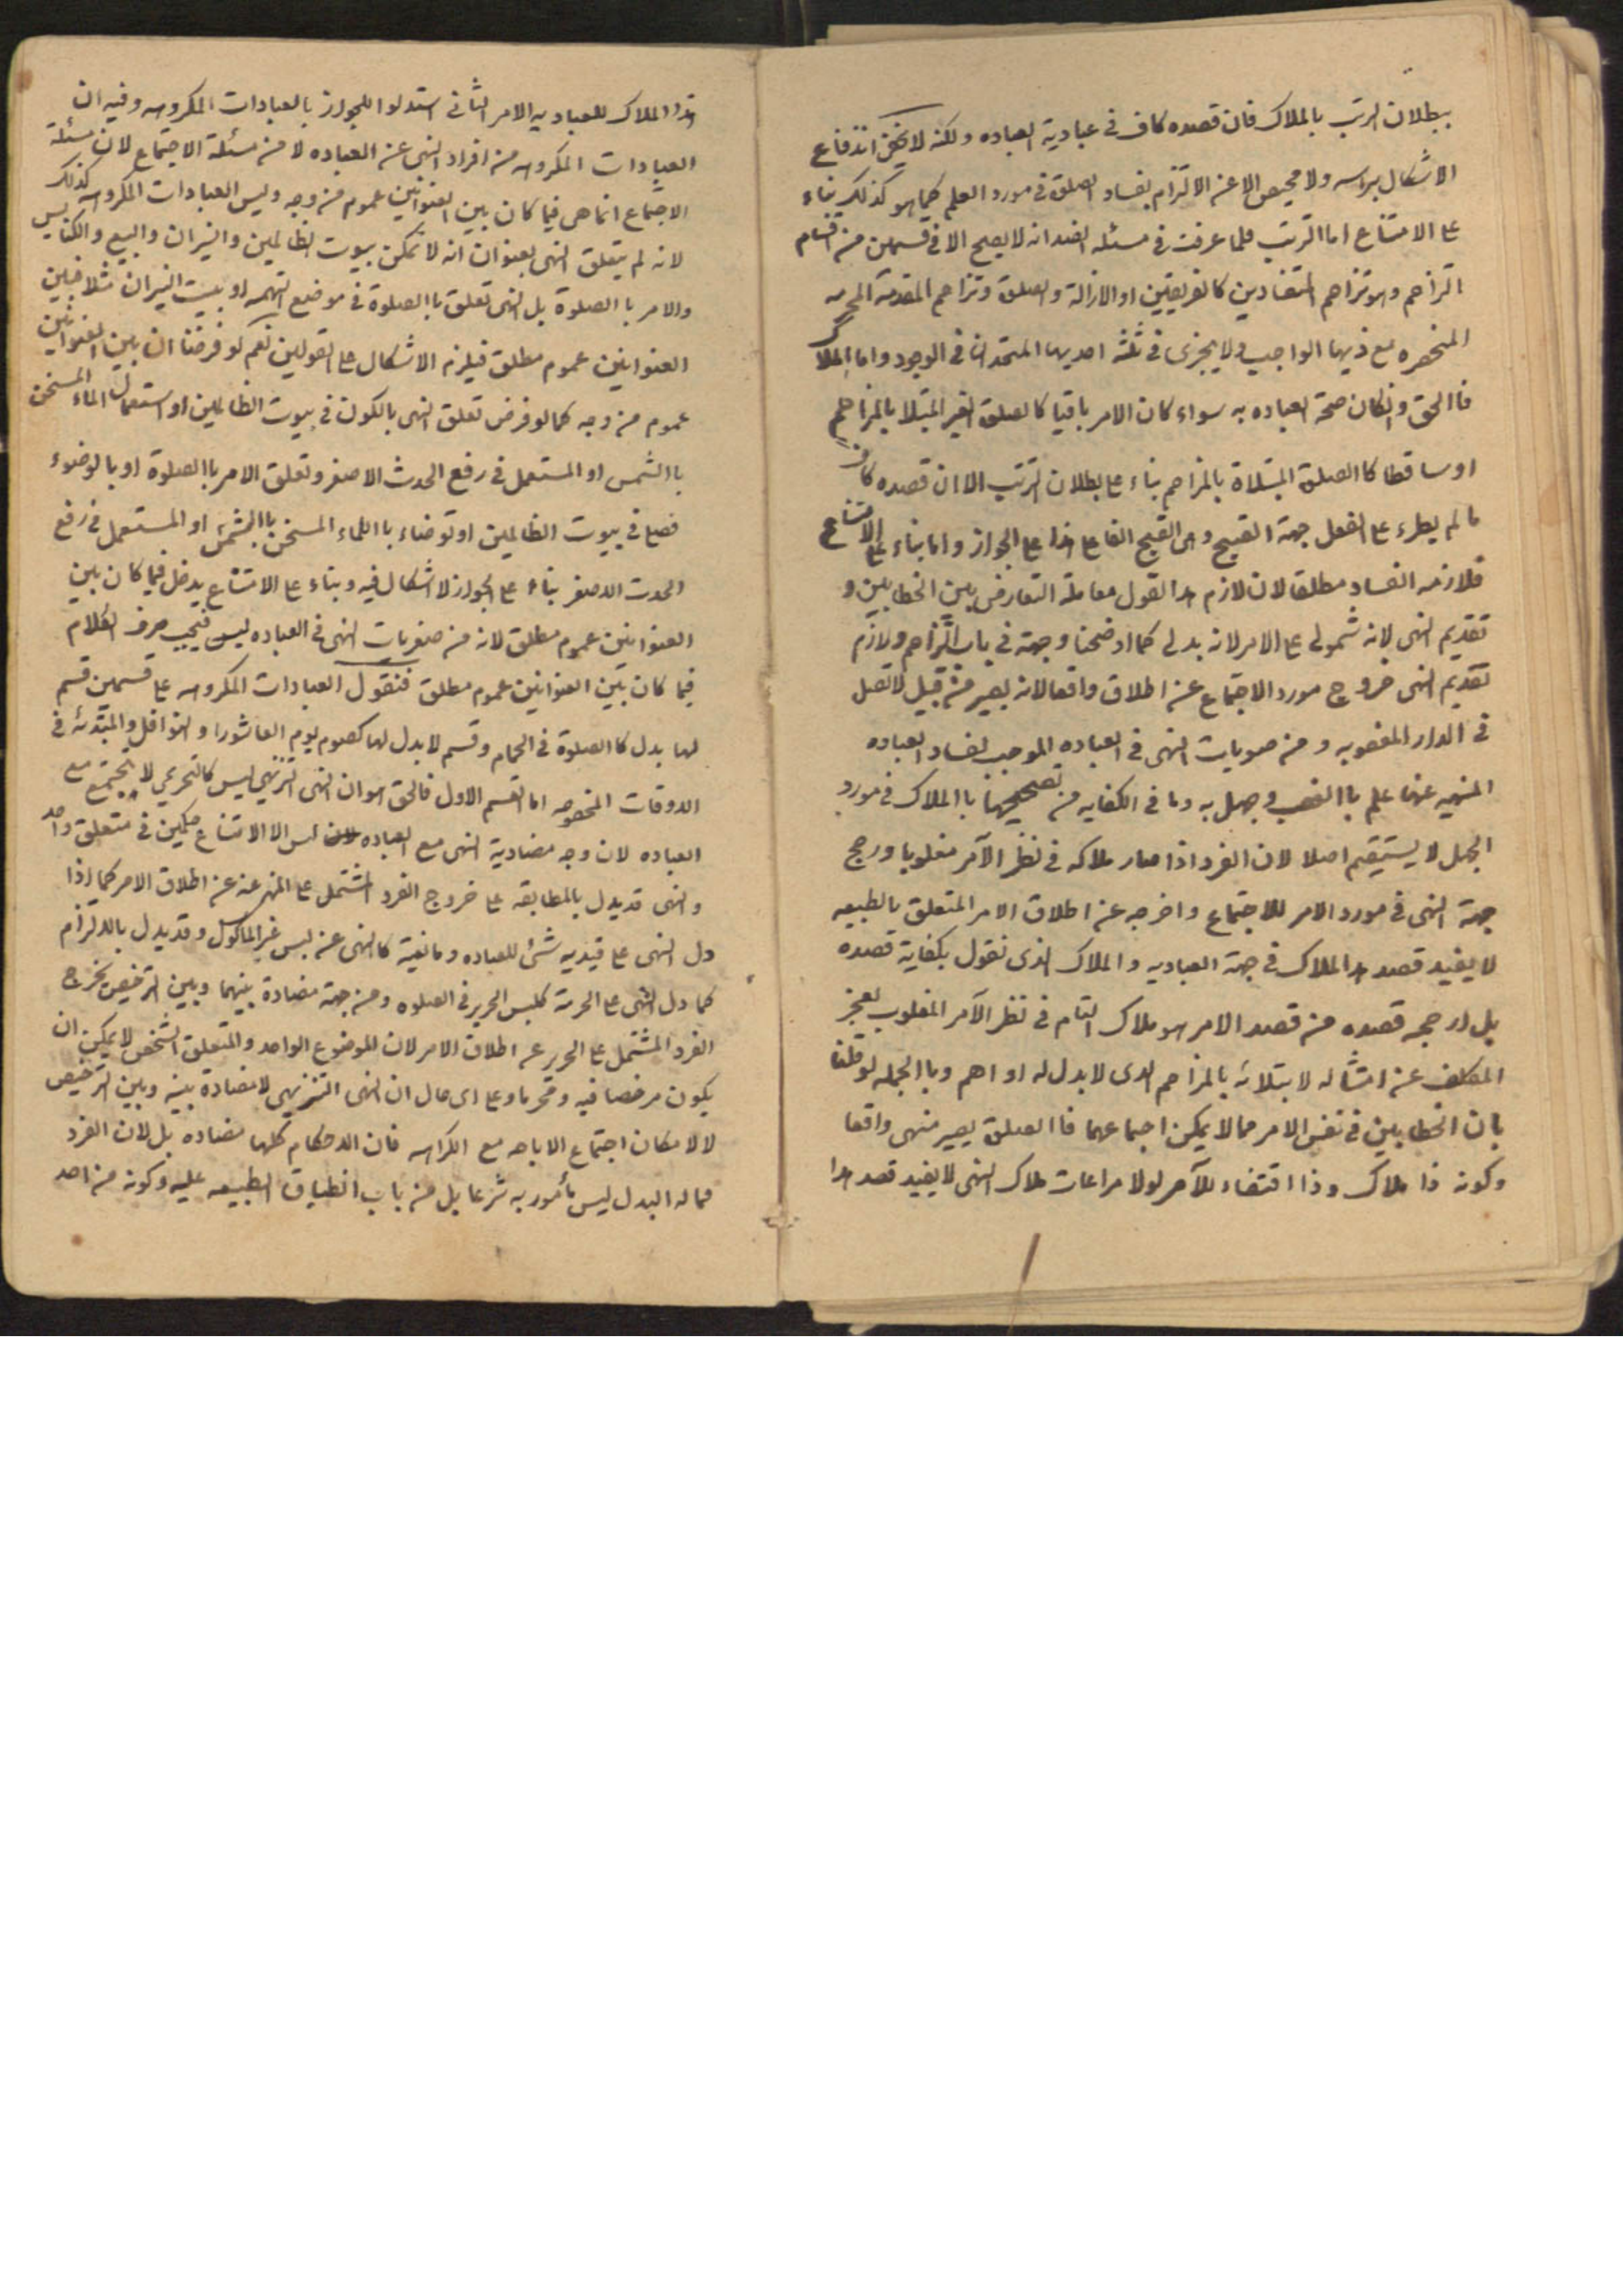 ببطلان الترتب بالملاك فان قصده كاف فى عبادية العباده ولكنه لا يخفى اندفاع
الاشكال براسه ولا محيص الا عن الالتزام بفساد الصلوة فى مورد العلم كما هو كذلك بناء
على الامتناع اما الترتب فلما عرفت فى مسئله الضد انه لا يصح الا فى قسمين من اقسام
التزاحم وهو تزاحم المتضادين كالغريقين او الازالة والصلوة وتزاحم المقدمة المحرمه
المنحصره مع ذيها الواجب ولا يجزى فى ثلثة احديها المتحدان فى الوجود واما الملاك
فاالحق وانكان صحة العباده به سواء كان الامر باقيا كالصلوة الغير المبتلا بالمزاحم
او ساقطا كاالصلوة المبتلاة بالمزاحم بناء على بطلان الترتب الا ان قصده كاف
ما لم يطرء على الفعل جهة القبيح وهى القبح الفاعلى هذا على الجواز واما بناء على الامتناع
فلازمه الفساد مطلقا لان لازم هذا القول معاملة التعارض بين الخطابين و
تقديم النهى لانه شمولى على الامر لانه بدلى كما اوضحنا وجهة فى باب التزاحم ولازم
تقديم النهى خروج مورد الاجتماع عن اطلاق واقعا لانه يصير من قبيل لا تصل
فى الدار المغصوبه و من صغريات النهى فى العباده الموجب لفساد العباده
المنهيه عنها علم باالغصب وجهل به وما فى الكفايه من تصحيحها باالملاك فى مورد
الجهل لا يستيقيم اصلا لان الفرد اذا صار ملاكه فى نظر الآمر مغلوبا ورجح
جهة النهى فى مورد الامر للاجتماع واخرجه عن اطلاق الامر المتعلق بالطبيعه
لا يفيد قصد هذا الملاك فى جهة العباديه والملاك الذى نقول بكفاية قصده
بل ارجحيه قصده من قصد الامر هو ملاك التام فى نظر الآمر المغلوب لعجز
المكلف عن امتثاله لابتلائه بالمزاحم الذى لا بدل له او اهم وباالجمله لو قلنا
بان الخطابين فى نفس الامر مما لا يمكن اجتماعهما فاالصلوة يصير منهى واقعا
وكونه ذا ملاك وذا اقتضاء للآمر لولا مراعات ملاك النهى لا يفيد قصد هذا
هذا الملاك للعباديه الامر الثانى استدلوا للجواز بالعبادات المكروهه وفيه ان
العبادات المكروهه من افراد النهى عن العباده لا من مسئلة الاجتماع لان مسئلة
الاجتماع انما هى فيما كان بين العنوانين عموم من وجه وليس العبادات المكروهه كذلك
لانه لم يتعلق النهى بعنوان انه لا تمكن بيوت الظالمين والنيران والبيع والكنايس
والامر باالصلوة بل النهى تعلق باالصلوة فى موضع التهمه او بيت النيران مثلا فبين
العنوانين عموم مطلق فيلزم الاشكال على القولين نعم لو فرضنا ان بين العنوانين
عموم من وجه كما لو فرض تعلق النهى بالكون فى بيوت الظالمين او استعمال الماء المسخن
باالشمس او المستعمل فى رفع الحدث الاصغر وتعلق الامر باالصلوة او بالوضوء
فصلى فى بيوت الظالمين او توضاء باالماء المسخن باالشمس او المستعمل فى رفع
الحدث الاصغر بناء على الجواز لا اشكال فيه وبناء على الامتناع يدخل فيما كان بين
العنوانين عموم مطلق لانه من صغريات النهى فى العباده ليس فيجب صرف الكلام
فيما كان بين العنوانين عموم مطلق فنقول العبادات المكروهه على قسمين قسم
لها بدل كاالصلوة فى الحمام وقسم لا بدل لها كصوم يوم العاشورا والنوافل المبتدئه فى
الاوقات المخصوصه اما القسم الاول فالحق هو ان النهى التنزيهى ليس كالتحريمى لا يجتمع مع
العباده لان وجه مضادية النهى مع العباده ليس الا الامتناع حكمين فى متعلق واحد
والنهى قد يدل بالمطابقه على خروج الفرد المشتمل على المنهى عنه عن اطلاق الامر كما اذا
دل النهى على قيديه شئ للعباده ومانعية كالنهى عن لبس غير الماكول وقد يدل بالالتزام
كما دل النهى على الحرمة كلبس الحرير فى الصلوه ومن جهة مضادة بينهما وبين الترخيص يخرج
الفرد المشتمل على الحرير عن اطلاق الامر لان الموضوع الواحد والمتعلق الشخصى لا يمكن ان
يكون مرخصا فيه ومحرما وعلى اى حال ان النهى التنزيهى لا مضادة بينه وبين الترخيص
لا لامكان اجتماع الاباحه مع الكراهه فان الاحكام كلها مضاده بل لان الفرد
مما له البدل ليس مأمور به شرعا بل من باب انطباق الطبيعه عليه وكونه من احد